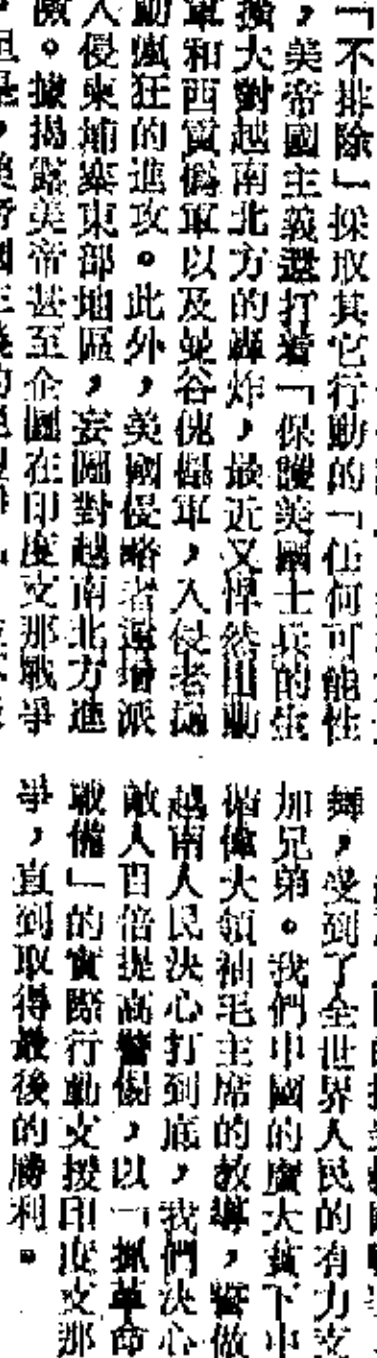 「不排除」採取其它行動的「任何可能性
，美帝國主義還打着「保護美國士兵的生
擴大對越南北方的轟炸，最近又悍然出動
軍和西貢僞軍以及曼谷傀儡軍，入侵老撾
動瘋狂的進攻。此外，美國侵略者還增派
人侵柬埔寨東部地區，妄圖對越南北方進
。據揭露美帝甚至企圖在印度支那戰爭
舞，受到了全世界人民的有力支
加兄弟。我們中國的廣大貧下中
偉大領袖毛主席的教導，誓做
越南人民決心打到底，我們決心
敵人百倍提高警惕，以「抓革命
戰備」的實際行動支援印度支那
爭，直到取得最後的勝利。